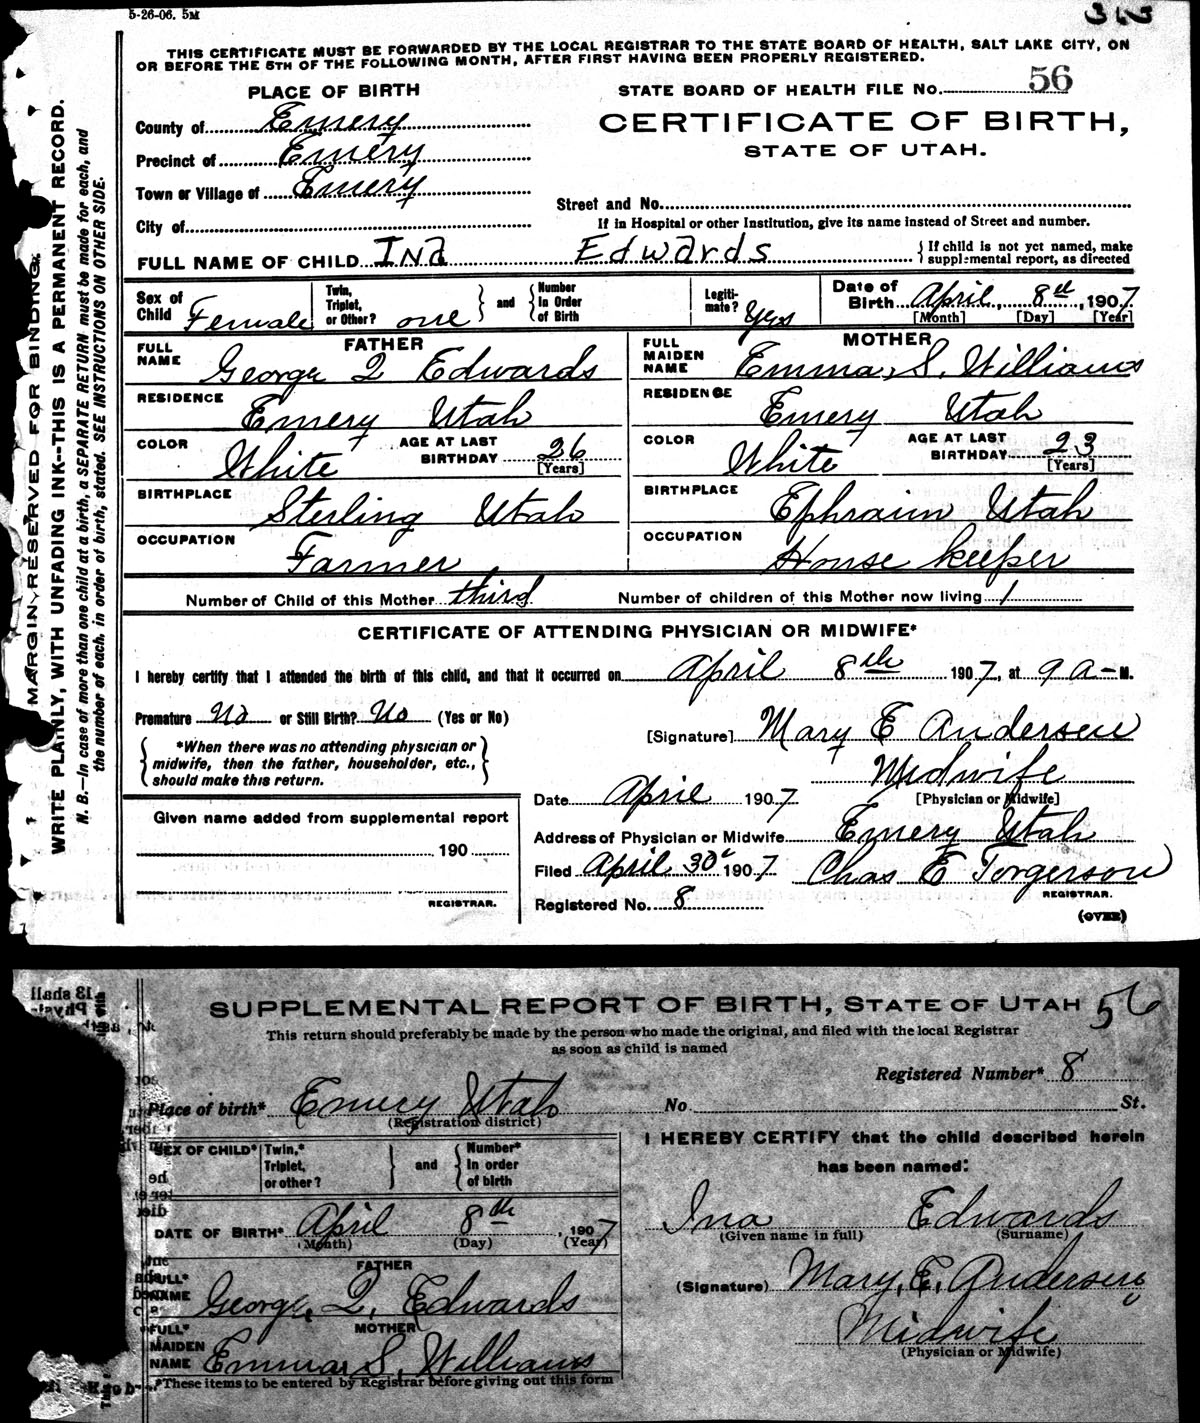 5-26-06. 5M
THIS CERTIFICATE MUST BE FORWARDED BY THE LOCAL REGISTRAR TO THE STATE BOARD OF HEALTH, SALT LAKE CITY, ON
OR BEFORE THE 5TH OF THE FOLLOWING MONTH, AFTER FIRST HAVING BEEN PROPERLY REGISTERED.
PLACE OF BIRTH
STATE BOARD OF HEALTH FILE NO. 56
County of Emery
CERTIFICATE OF BIRTH,
Precinct of Emery
STATE OF UTAH.
Town or Village of Emery
Street and No.
City of
If in Hospital or other Institution, give its name instead of Street and number.
FULL NAME OF CHILD Ina Edwards { If child is not yet named, make
supplemental report, as directed
Sex of Child Female
Twin, Triplet, or Other? one } and { Number In Order of Birth
Legitimate? Yes
Date of Birth April, 8th, 1907
[Month] [Day] [Year]
FATHER
FULL NAME George Q Edwards
MOTHER
FULL MAIDEN NAME Emma, S. Williams
RESIDENCE Emery Utah
RESIDENCE Emery Utah
COLOR White AGE AT LAST BIRTHDAY 26 [Years]
COLOR White AGE AT LAST BIRTHDAY 23 [Years]
BIRTHPLACE Sterling Utah
BIRTHPLACE Ephraim Utah
OCCUPATION Farmer
OCCUPATION House keeper
Number of Child of this Mother third Number of children of this Mother now living 1
CERTIFICATE OF ATTENDING PHYSICIAN OR MIDWIFE*
I hereby certify that I attended the birth of this child, and that it occurred on April 8th 1907, at 9 a-M.
Premature No or Still Birth? No (Yes or No)
[Signature] Mary E Andersen
*When there was no attending physician or
midwife, then the father, householder, etc.,
should make this return.
Midwife
[Physician or Midwife]
Date April 1907
Given name added from supplemental report
Address of Physician or Midwife Emery Utah
190
Filed April 30 1907 Chas E Torgerson
REGISTRAR.
REGISTRAR.
Registered No. 8
(OVER)
MARGIN RESERVED FOR BINDING.
WRITE PLAINLY, WITH UNFADING INK--THIS IS A PERMANENT RECORD.
N. B.--In case of more than one child at a birth, a SEPARATE RETURN must be made for each, and
the number of each, in order of birth, stated. SEE INSTRUCTIONS ON OTHER SIDE.
SUPPLEMENTAL REPORT OF BIRTH, STATE OF UTAH 56
This return should preferably be made by the person who made the original, and filed with the local Registrar
as soon as child is named
Registered Number* 8
Place of birth* Emery Utah No. St.
(Registration district)
SEX OF CHILD* Twin,* Triplet, or other? } and { Number* In order of birth
I HEREBY CERTIFY that the child described herein
has been named:
DATE OF BIRTH* April 8th, 1907
(Month) (Day) (Year)
Ina Edwards
(Given name in full) (Surname)
FATHER
FULL* NAME George, Q, Edwards
(Signature) Mary, E, Andersen
MOTHER
FULL* MAIDEN NAME Emma, S, Williams
Midwife
(Physician or Midwife)
*These items to be entered by Registrar before giving out this form